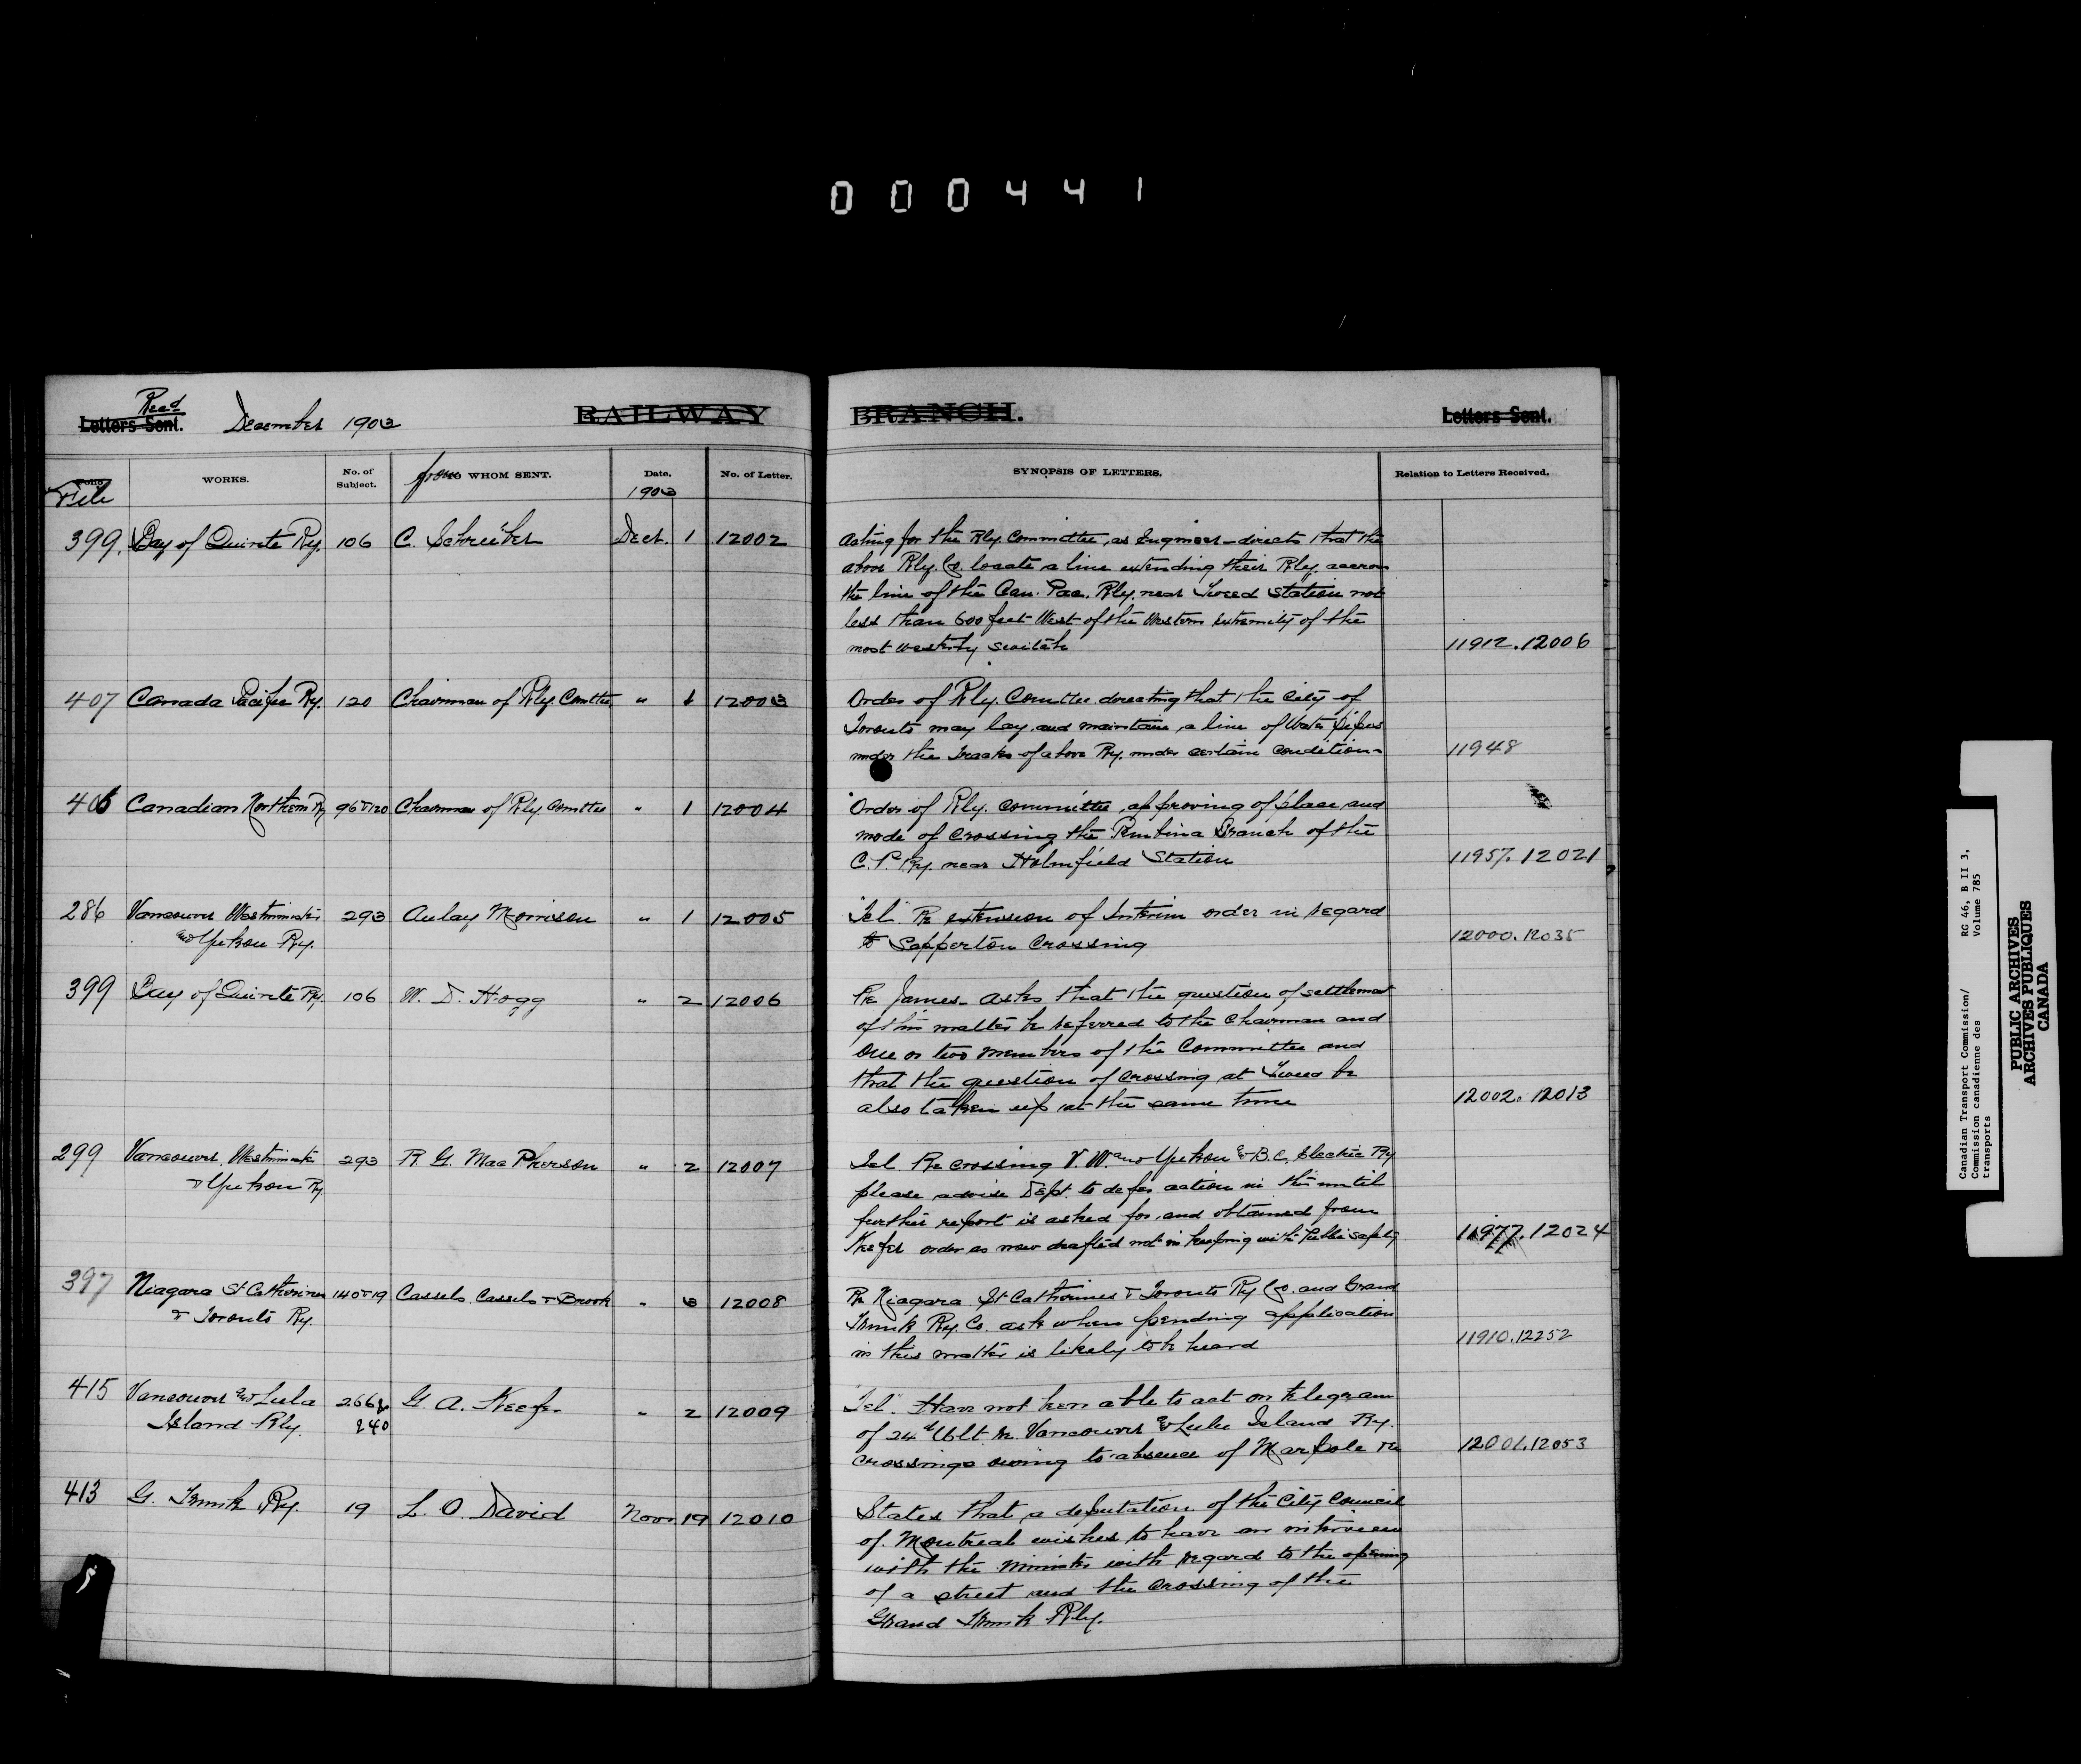 000441
Recd
Letters Sent. December 1903 RAILWAY
Folio File WORKS. No. of Subject. from TO WHOM SENT. Date. 1903 No. of Letter.
399. Bay of Quinte Ry. 106 C. Schreiber Decr. 1 12002
407 Canada Pacific Ry. 120 Chairman of Rly. Comttee " 1 12003
406 Canadian Northern Ry 96 & 120 Chairman of Rly Comttee " 1 12004
286 Vancouver Westminster 293 Aulay Morrison " 1 12005
and Yukon Ry.
399 Bay of Quinte Ry. 106 W. D. Hogg " 2 12006
299 Vancouver, Westminster 293 R. G. MacPherson " 2 12007
& Yukon Ry
397 Niagara St Catharines 140 & 19 Cassels Cassels & Brock " 12008
& Toronto Ry.
415 Vancouver and Lulu 266 & G. A. Keefer " 2 12009
Island Rly. 240
413 G. Trunk Ry. 19 L. O. David Novr 19 12010
BRANCH. Letters Sent.
SYNOPSIS OF LETTERS. Relation to Letters Received.
Acting for the Rly Committee, as Engineer – directs that the
above Rly. Co. locate a line extending their Rly. across
the line of the Can. Pac. Rly. near Tweed Station not
less than 600 feet West of the Western extremity of the
most westerly switch 11912.12006
Order of Rly. Comttee. directing that the City of
Toronto may lay and maintain a line of Water Pipes
under the tracks of above Ry. under certain conditions 11948
Order of Rly. Committee, approving of place and
mode of crossing the Pembina Branch of the
C. P. Ry. near Holmfield Station 11957.12021
"Tel". Re extension of Interim order in regard
to Sapperton Crossing 12000.12035
Re James – asks that the question of settlement
of this matter be referred to the Chairman and
one or two members of the Committee and
that the question of crossing at Tweed be
also taken up at the same time 12002.12013
Tel. Re crossing V. W. and Yukon & B.C. Electric Ry
please advise Dept. to defer action in this until
further report is asked for and obtained from
Keefer order as now drafted not in keeping with Public safety 11977.12024
Re Niagara St Catharines & Toronto Ry Co. and Grand
Trunk Ry. Co. ask when pending application
in this matter is likely to be heard 11910.12252
"Tel". Have not been able to act on telegram
of 24th Ult. re Vancouver & Lulu Island Ry.
crossings owing to absence of Marpole 12001.12053
States that a deputation of the City Council
of Montreal wishes to have an interview
with the Minister with regard to the opening
of a street and the crossing of the
Grand Trunk Rly.
Canadian Transport Commission/ RG 46, B II 3,
Commission canadienne des Volume 785
transports
PUBLIC ARCHIVES
ARCHIVES PUBLIQUES
CANADA